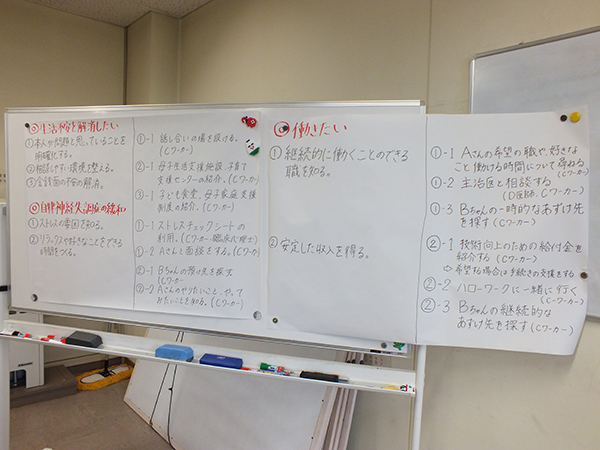 ◎生活不安を解消したい
①本人が問題と思っていることを
明確化する。
②相談しやすい環境を整える。
③金銭面の不安の解消。
◎自律神経失調症の緩和
①ストレスの要因を知る。
②リラックスや好きなことをできる
時間をつくる。
①-1 話し合いの場を設ける。
(Cワーカー)
②-1 母子生活支援施設、子育て
支援センターの紹介。(Cワーカー)
③-1 子ども食堂、母子家庭支援
制度の紹介。(Cワーカー)
①-1 ストレスチェックシートの
利用。(Cワーカー・臨床心理士)
①-2 Aさんと面談をする。(Cワーカー)
②-1 Bちゃんの預け先を探す
(Cワーカー)
②-2 Aさんのやりたいこと、やって
おたいことを知る。(Cワーカー)
◎働きたい
①継続的に働くことのできる
職を知る。
②安定した収入を得る。
①-1 Aさんの希望の職や、好きな
こと働ける時間について尋ねる
(Cワーカー)
①-2 主治医と相談する
(D医師、Cワーカー)
①-3 Bちゃんの一時的なあずけ先
を探す(Cワーカー)
②-1 技術向上のための給付金を
紹介する(Cワーカー)
⇨希望する場合は手続きの支援をする
②-2 ハローワークに一緒に行く
(Cワーカー)
②-3 Bちゃんの継続的な
あずけ先を探す(Cワーカー)